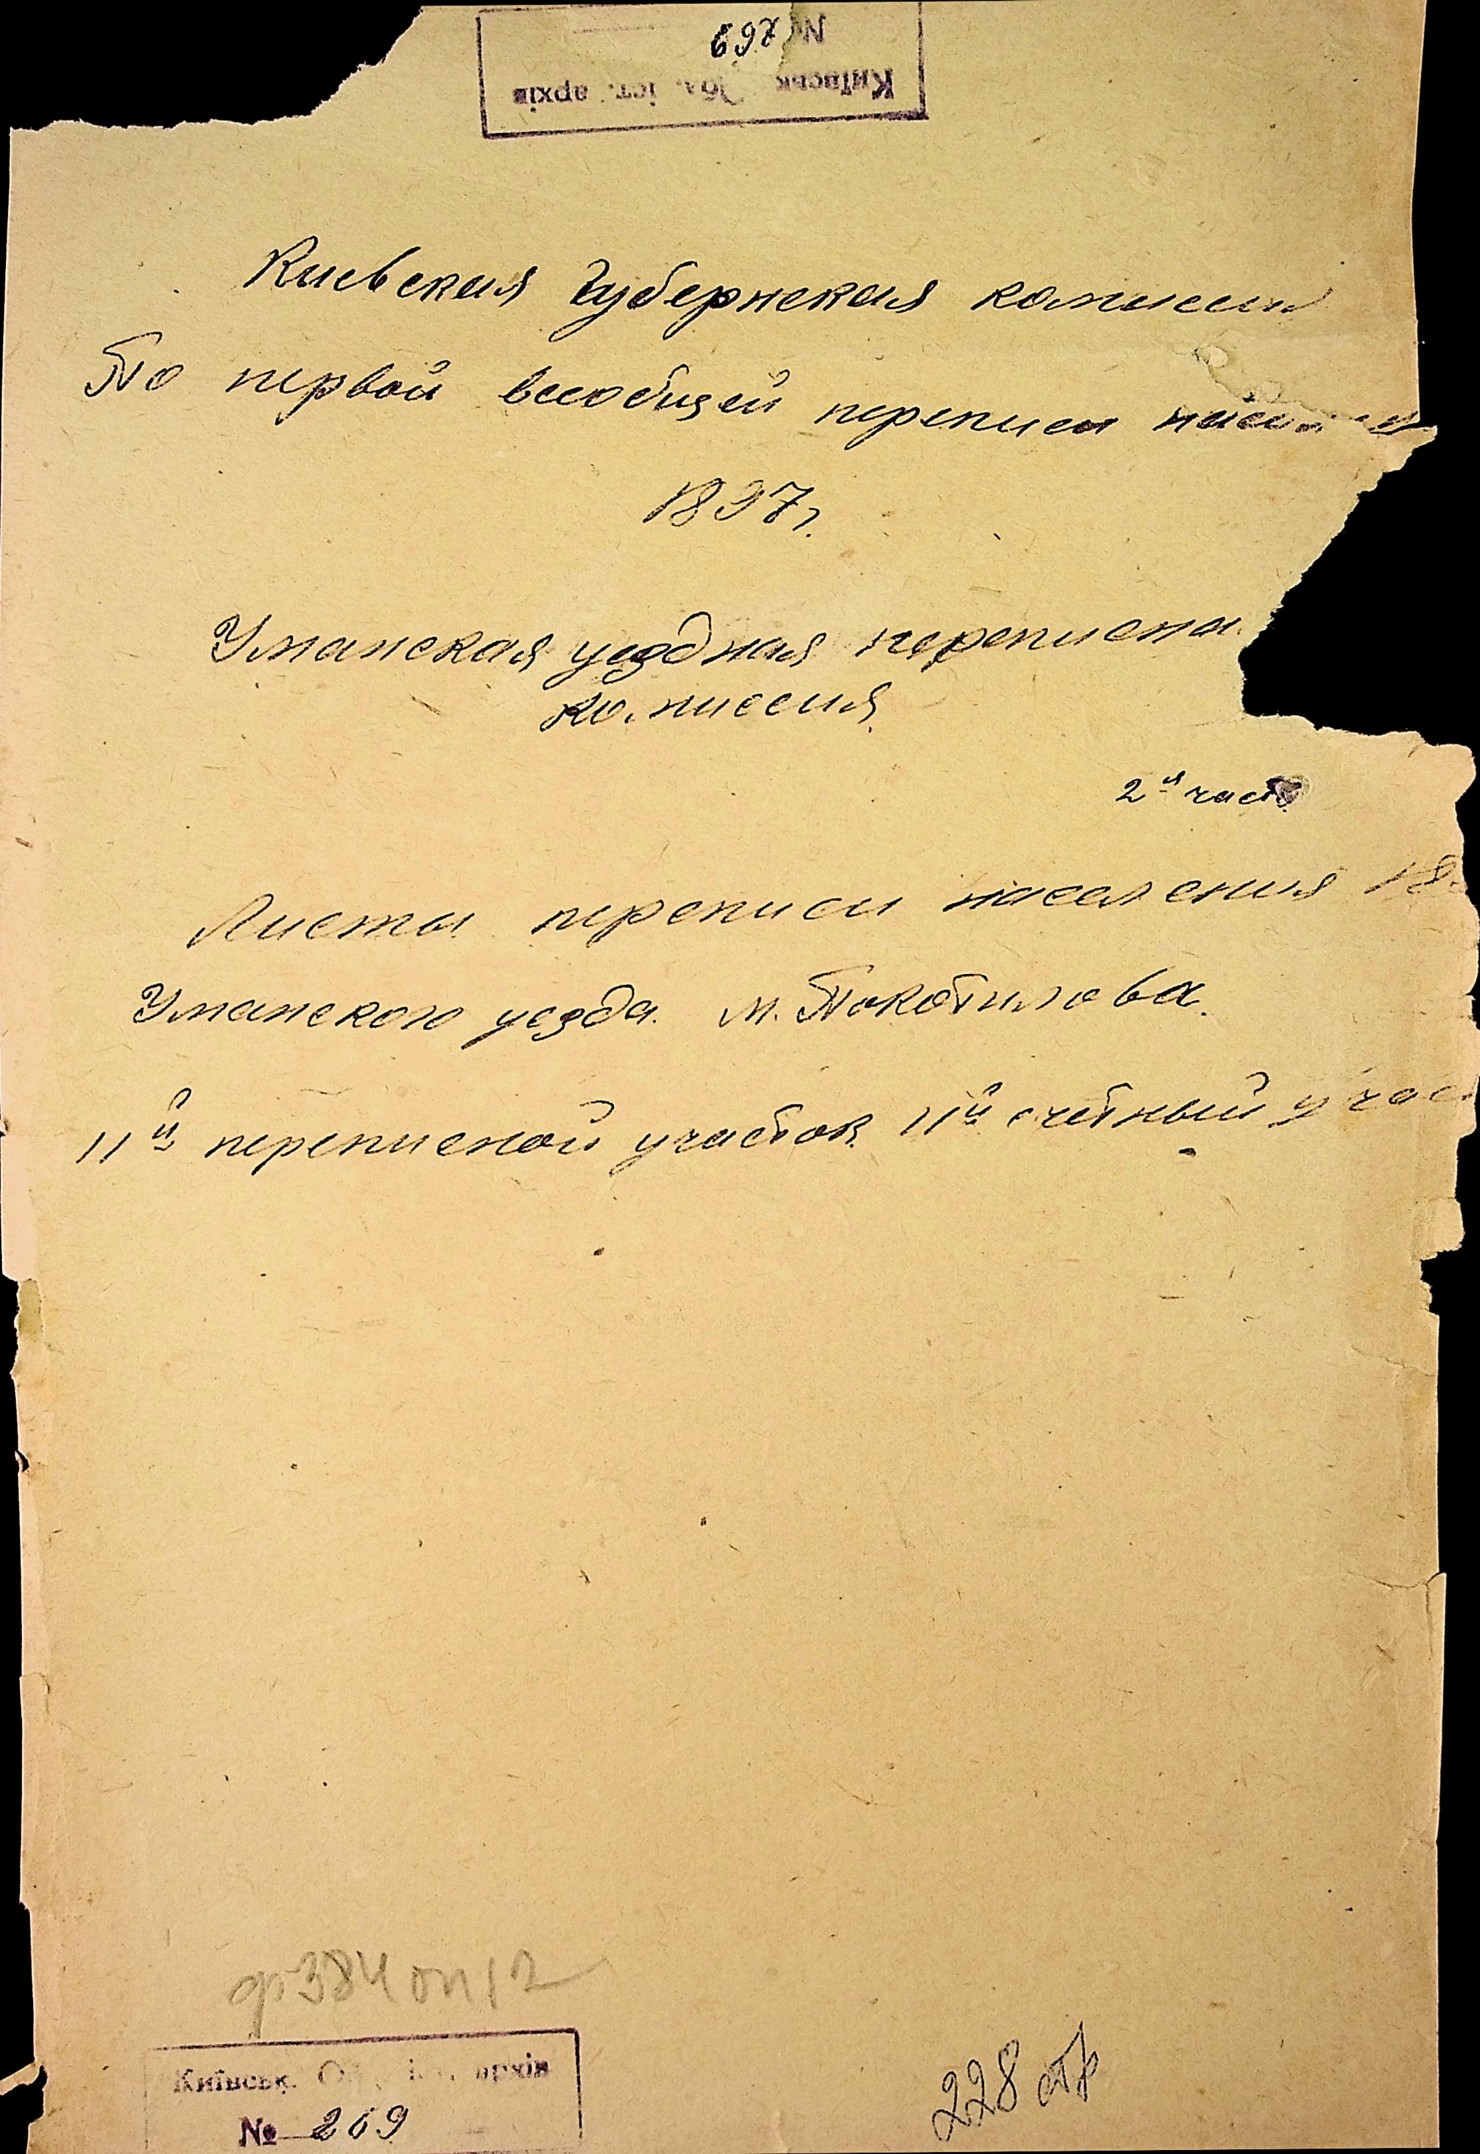 № 697
Київськ. Обл. іст. архів
Киевская Губернская комисия
По первой всеобщей переписи насел
1897г.
Уманская уездная переписна
комиссия
2я часть
Листы переписи населения 18
Уманского уезда. м. Покотилова.
11й переписной участок 11й счётный учас
ф 384 оп 12
Київськ. О іст. архів
№ 269
228 стр